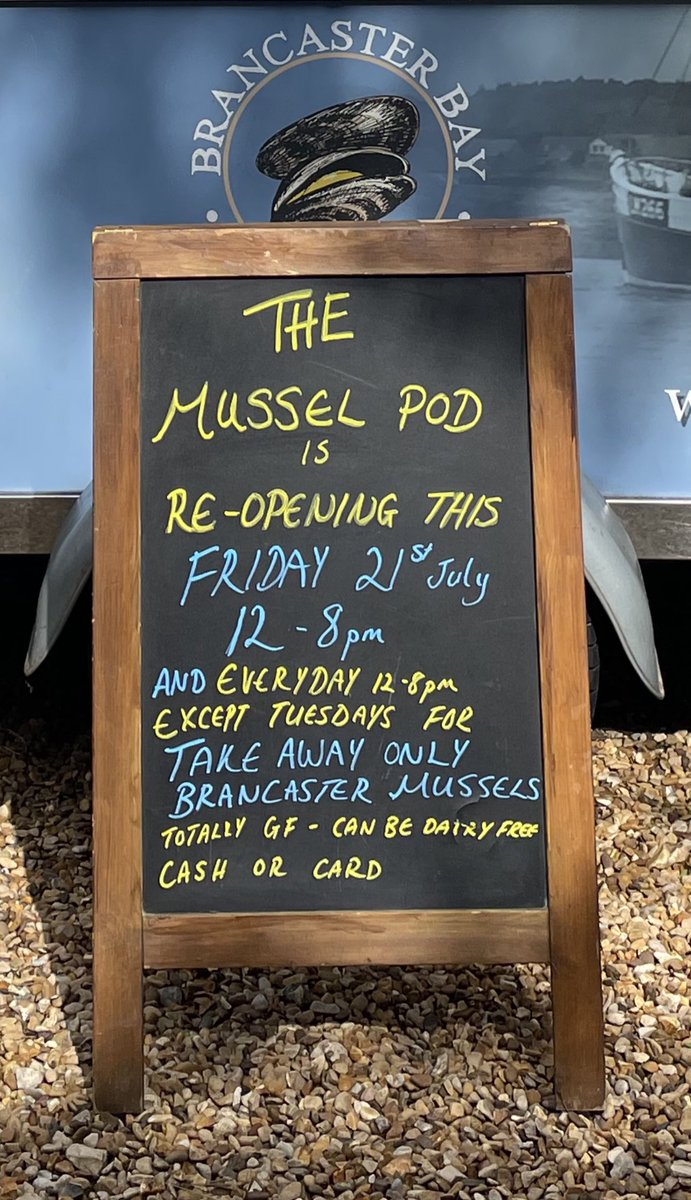 BRANCASTER BAY
THE
MUSSEL POD
IS
RE-OPENING THIS
FRIDAY 21st July
12-8pm
AND EVERYDAY 12-8pm
EXCEPT TUESDAYS FOR
TAKE AWAY ONLY
BRANCASTER MUSSELS
TOTALLY GF - CAN BE DAIRY FREE
CASH OR CARD